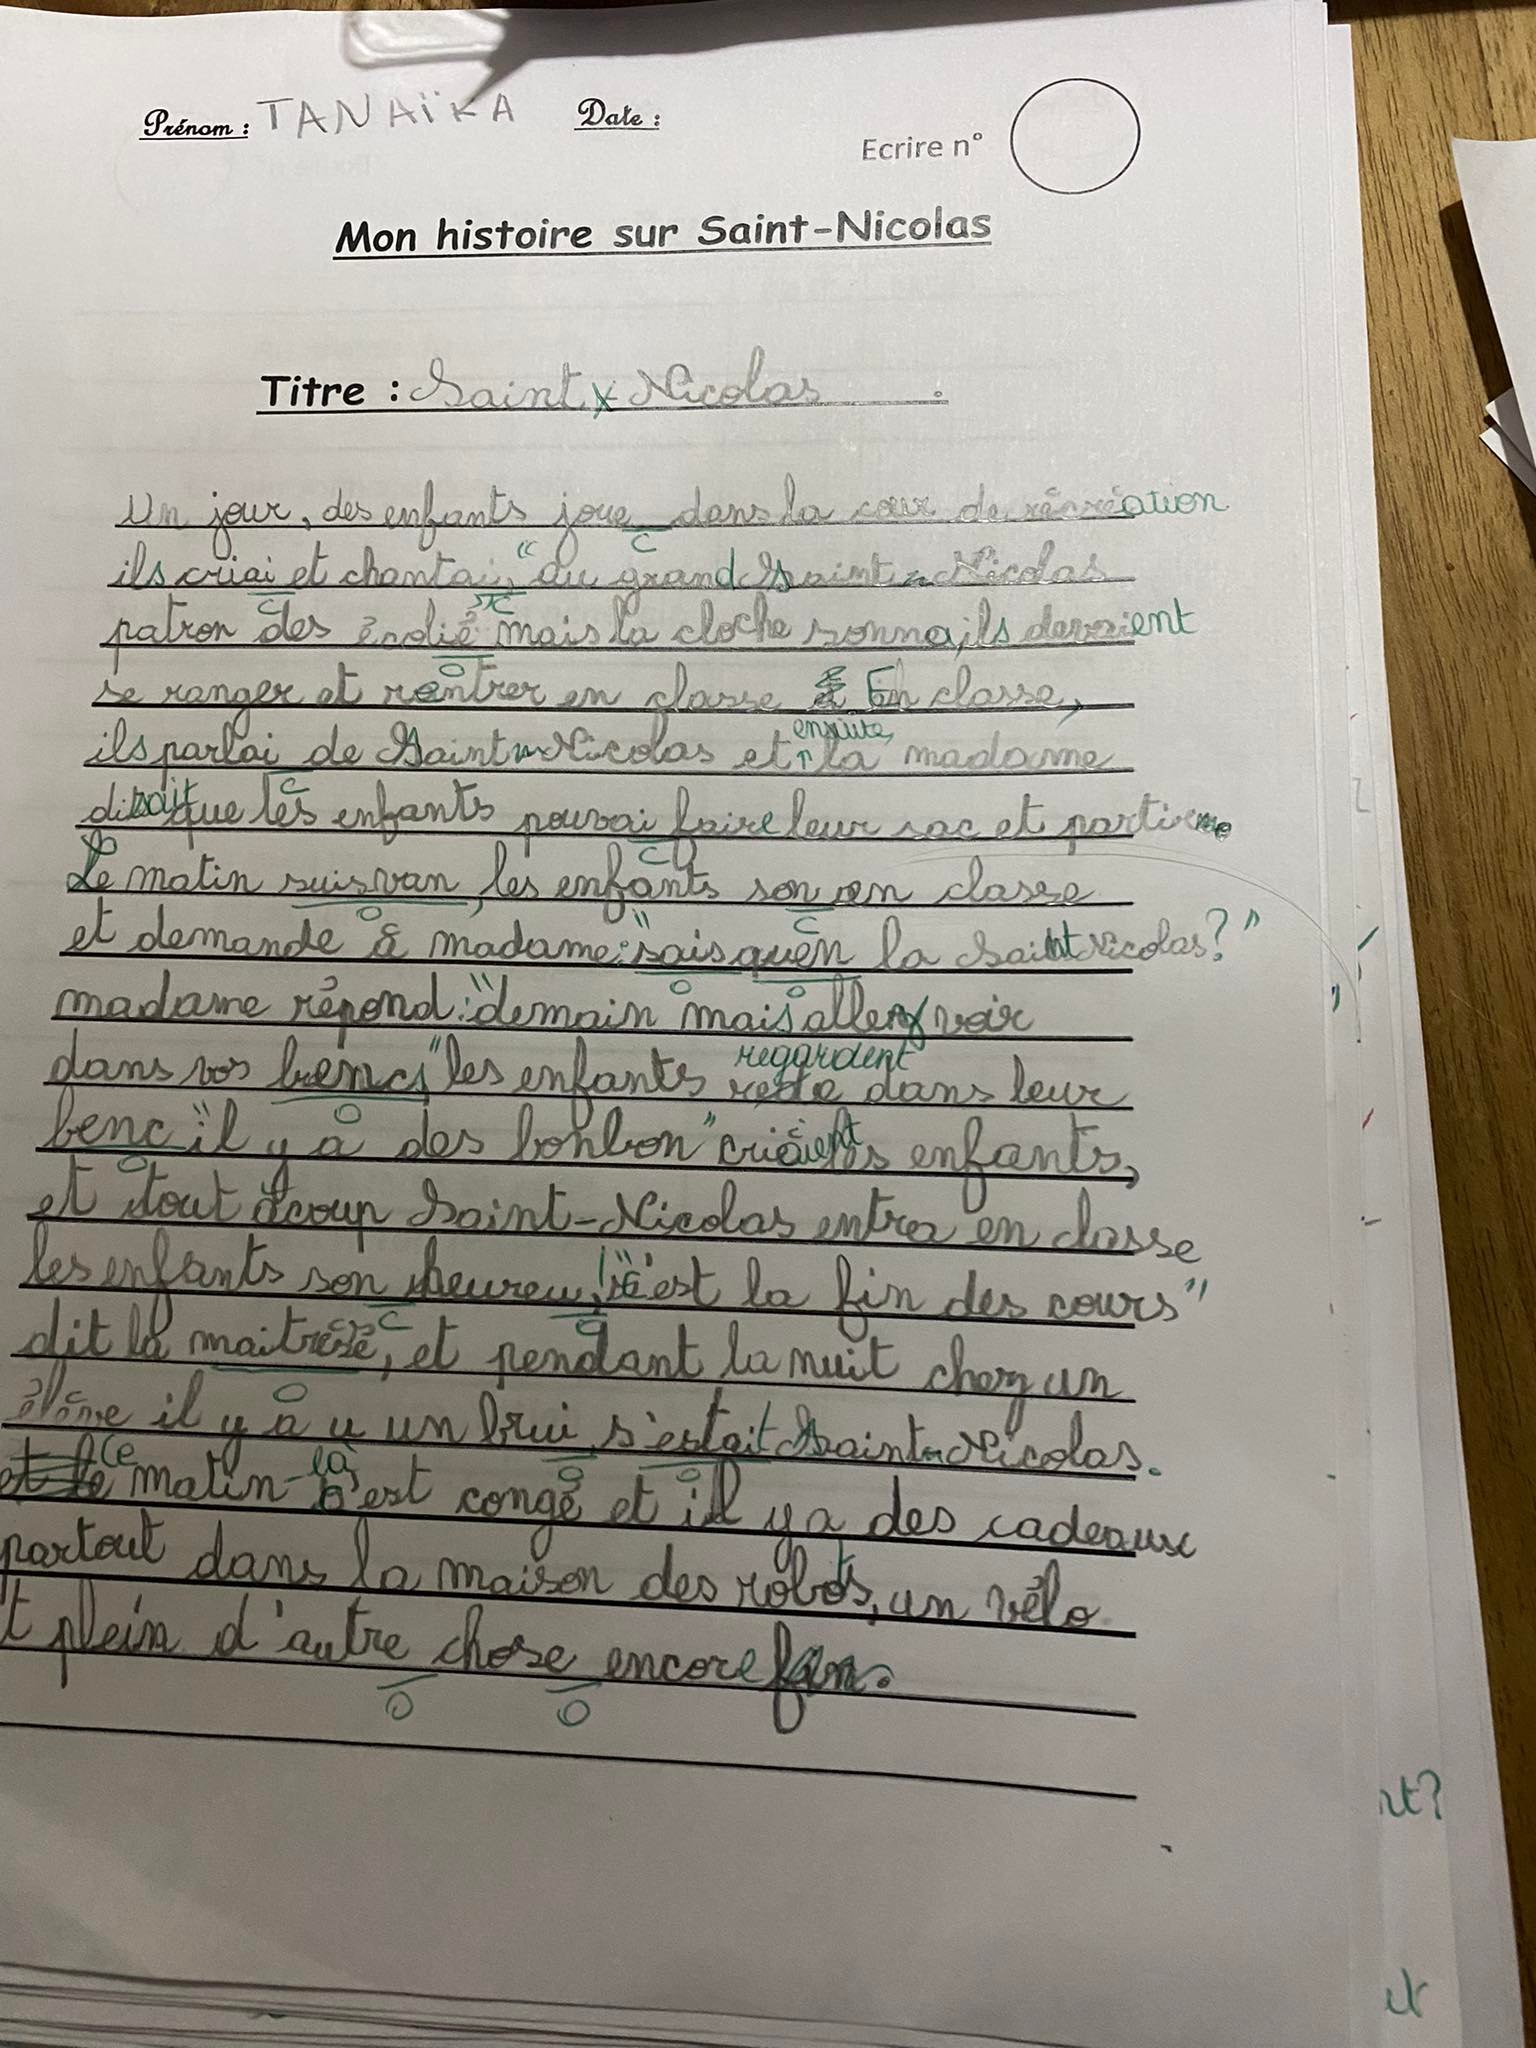 Prénom : TANAÏKA Date :
Ecrire n°
Mon histoire sur Saint-Nicolas
Titre : Saint Nicolas .
Un jour, des enfants joue dans la cour de récréation
ils criai et chantai, "Ou grand Saint-Nicolas
patron des écolié mais la cloche sonna, ils devaient
se ranger et rentrer en classe En classe,
ensuite,
ils parlai de Saint-Nicolas et la madame
disait que les enfants pouvai faire leur sac et partir
Le matin suisvan, les enfants son en classe
et demande à madame : "sais quen la Saint Nicolas ? "
madame répond : "demain mais aller voir
regardent
dans vos bencs" les enfants dans leur
benc "il y a des bonbon" criaient les enfants,
et tout à coup Saint-Nicolas entra en classe
les enfants son heureu, ! "c'est la fin des cours"
dit la maitrèsé, et pendant la nuit chez un
élève il y a u un brui s'estait Saint-Nicolas.
ce matin-là c'est congé et il y a des cadeaux
partout dans la maison des robots, un vélo
t plein d'autre chose encore
nt?
it